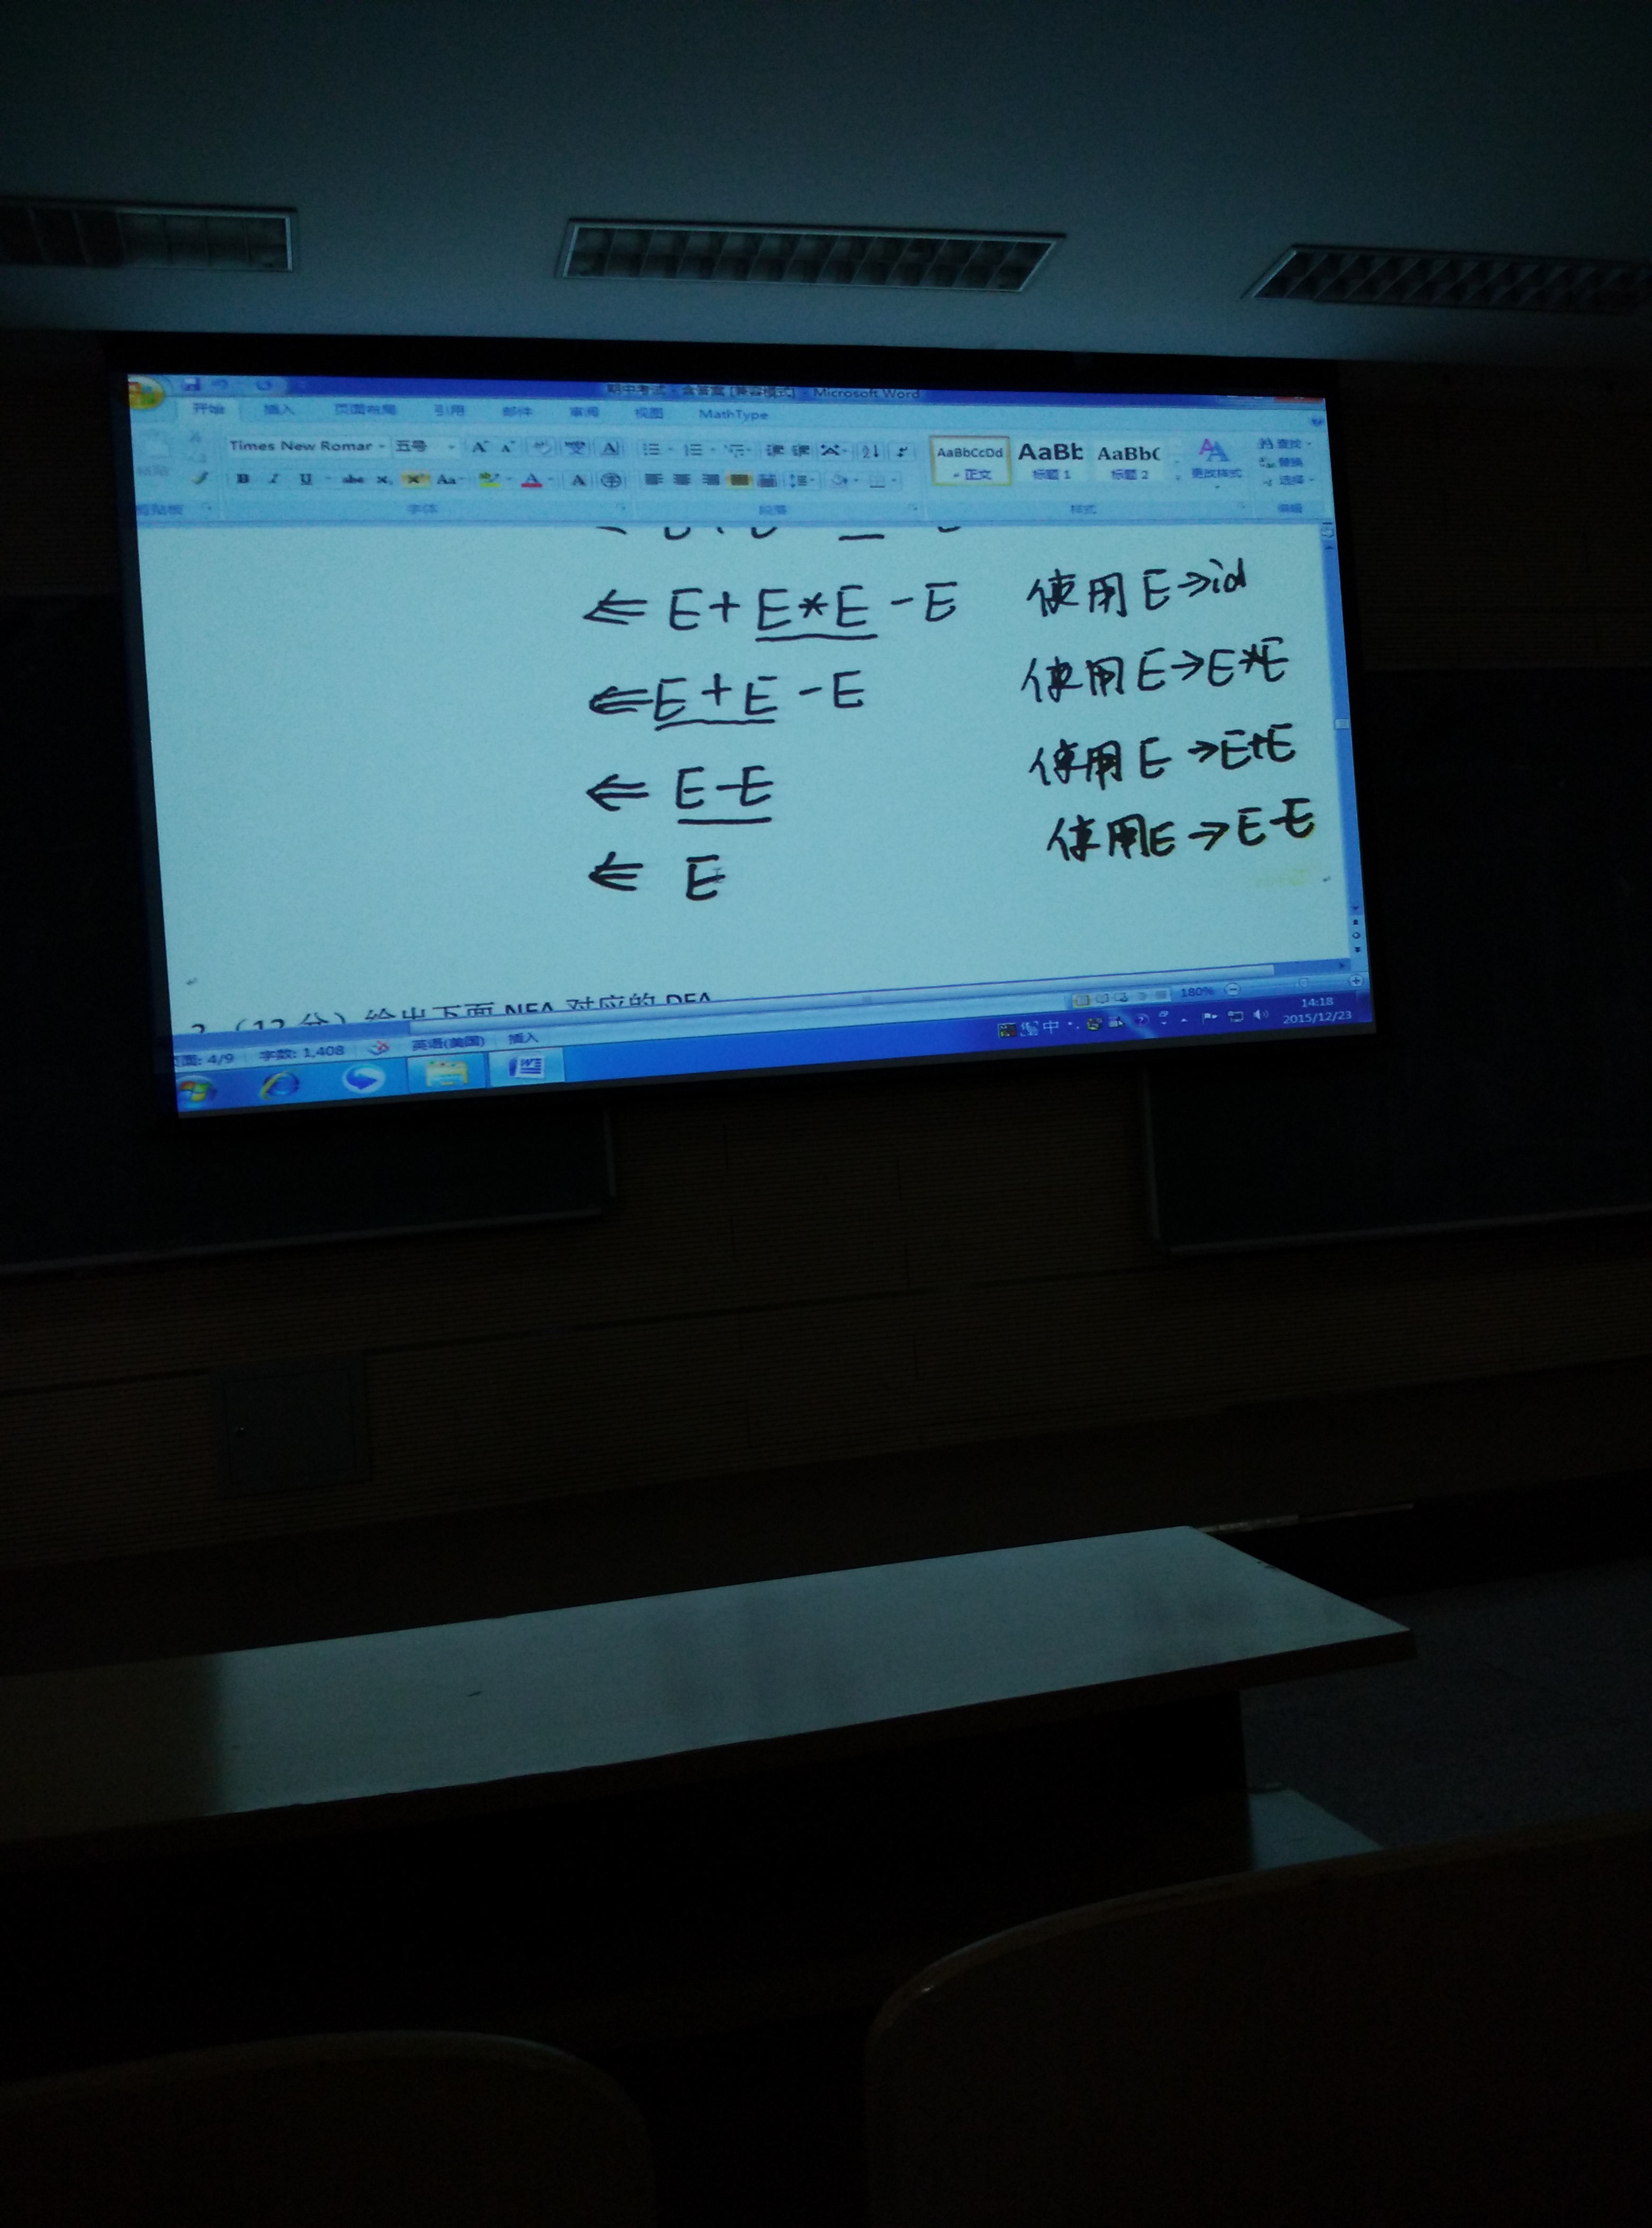 期中考试 - 含答案 [兼容模式] - Microsoft Word
开始 插入 页面布局 引用 邮件 审阅 视图 MathType
Times New Romar 五号
AaBbCcDd AaBb AaBbC
正文 标题 1 标题 2 更改样式
查找
替换
选择
字体 段落 样式 编辑
⇐ E+E*E-E 使用E→id
⇐ E+E-E 使用E→E*E
⇐ E-E 使用E→E+E
⇐ E 使用E→E-E
2. (12 分) 给出下面 NFA 对应的 DFA
页面: 4/9 字数: 1,408 英语(美国) 插入 180%
中 14:18
2015/12/23